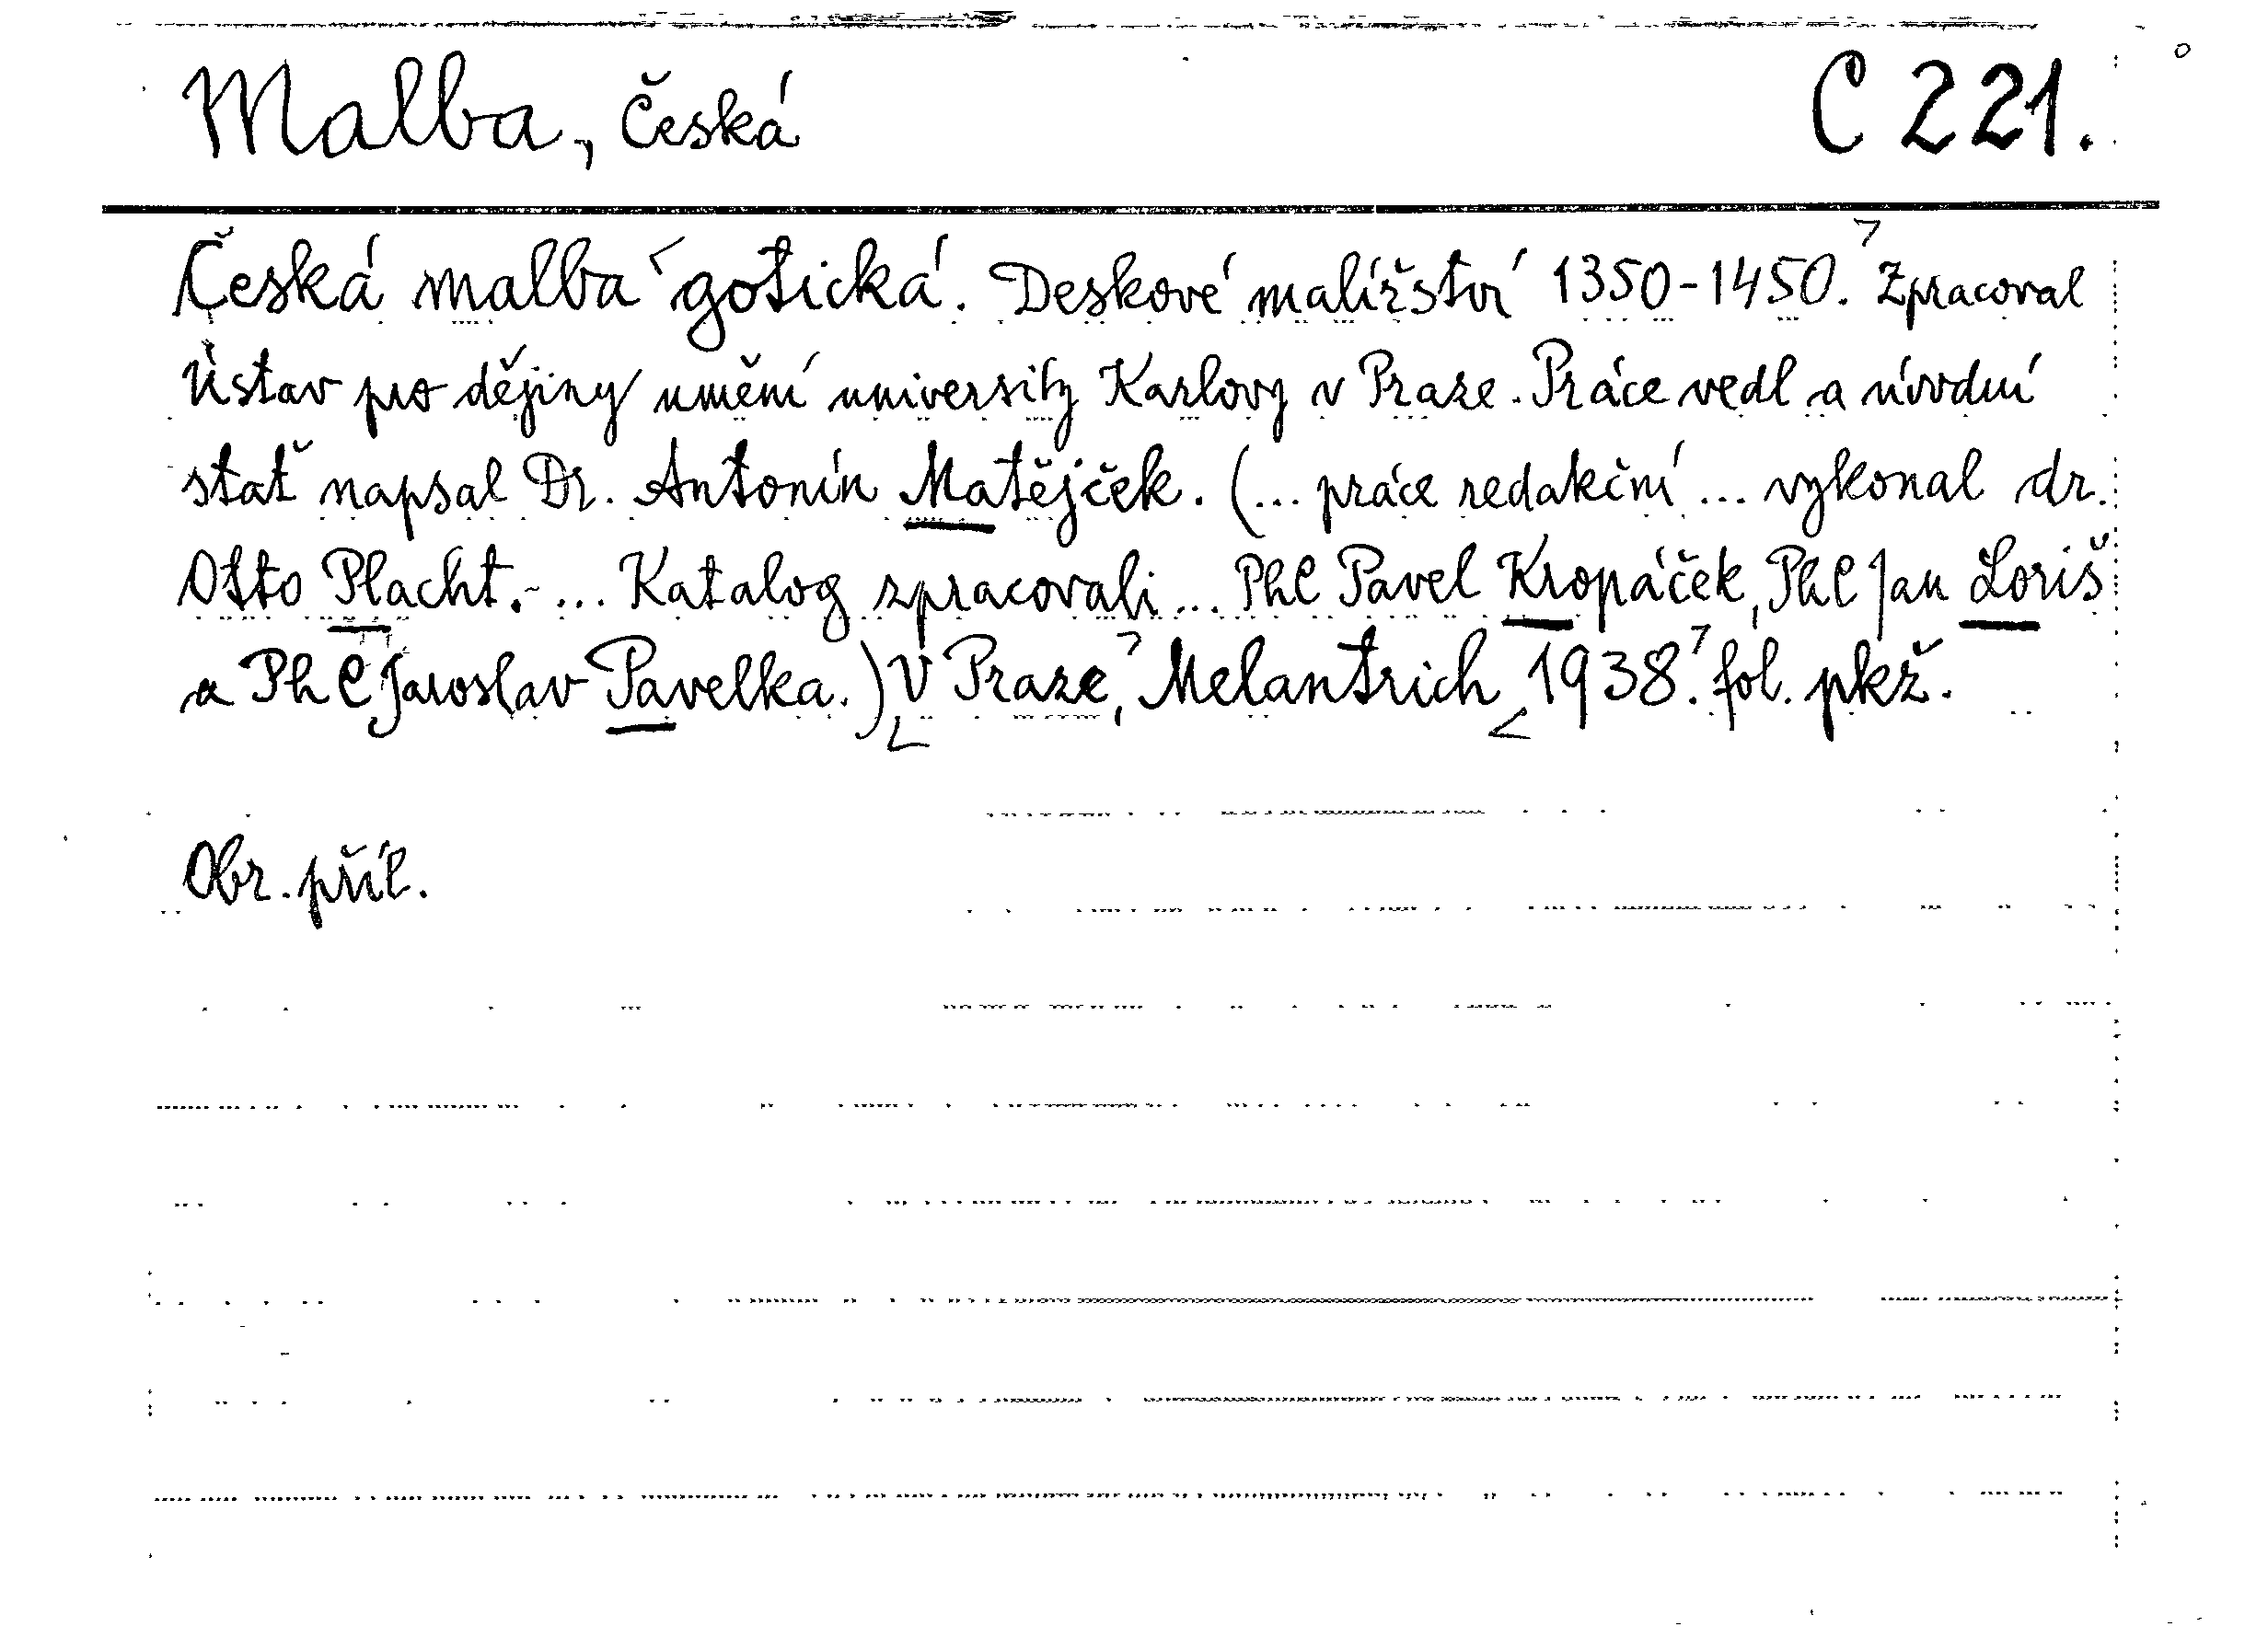 Malba, česká
C 221.
Česká malba gotická. Deskové malířství 1350-1450. Zpracoval
Ústav pro dějiny umění university Karlovy v Praze. Práce vedl a úvodní
stať napsal Dr. Antonín Matějček. (... práce redakční ... vykonal dr.
Otto Placht. - ... Katalog zpracovali ... PhC Pavel Kropáček, PhC Jan Loriš
a PhC Jaroslav Pavelka.) V Praze, Melantrich 1938. fol. pkž.
Obr. příl.